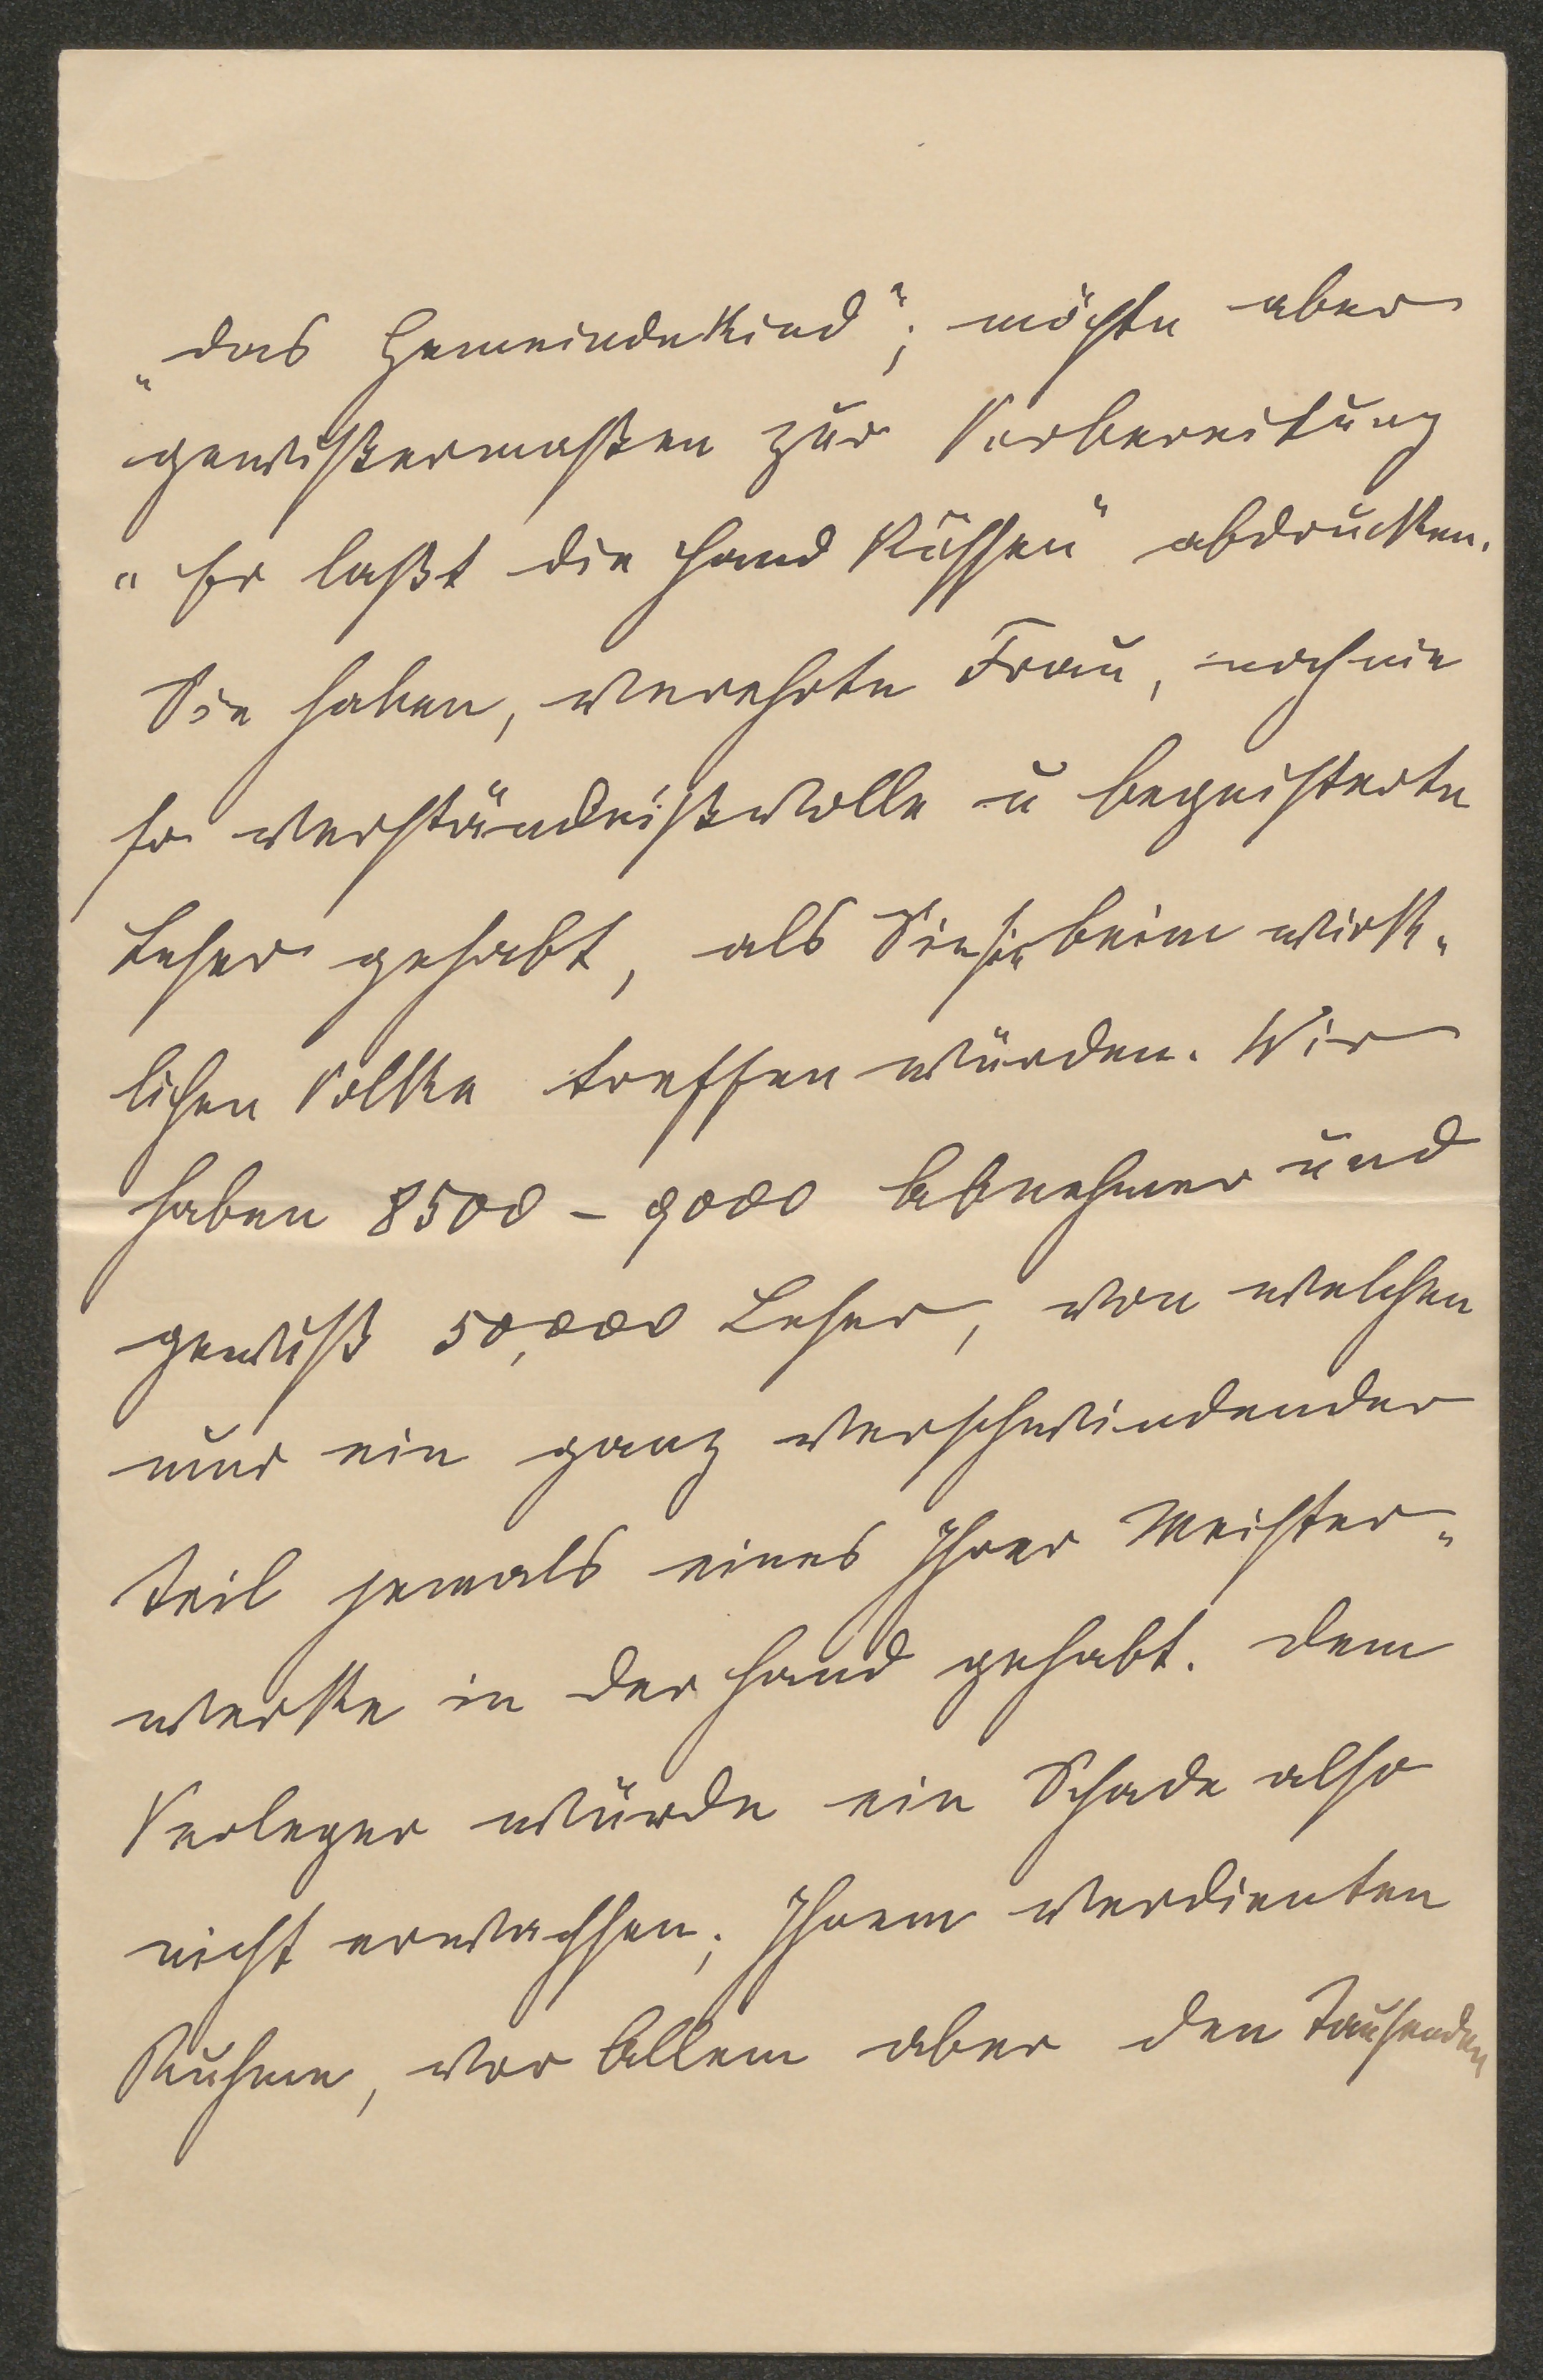 „das Gemeindekind"; möchte aber
gewißermaßen zur Vorbereitung
„Er laßt die Hand küssen" abdrucken.
Sie haben, verehrte Frau, noch nie
so verständnißvolle u begeisterte
Leser gehabt, als Sie sie beim wirk-
lichen Volke treffen würden. Wir
haben 8500 – 9000 Abnehmer und
gewiß 50,000 Leser, von welchen
nur ein ganz verschwindender
Teil jemals eines Ihrer Meister-
werke in der Hand gehabt. Dem
Verleger würde ein Schade also
nicht erwachsen; Ihrem verdienten
Ruhme, vor Allem aber den Tausenden